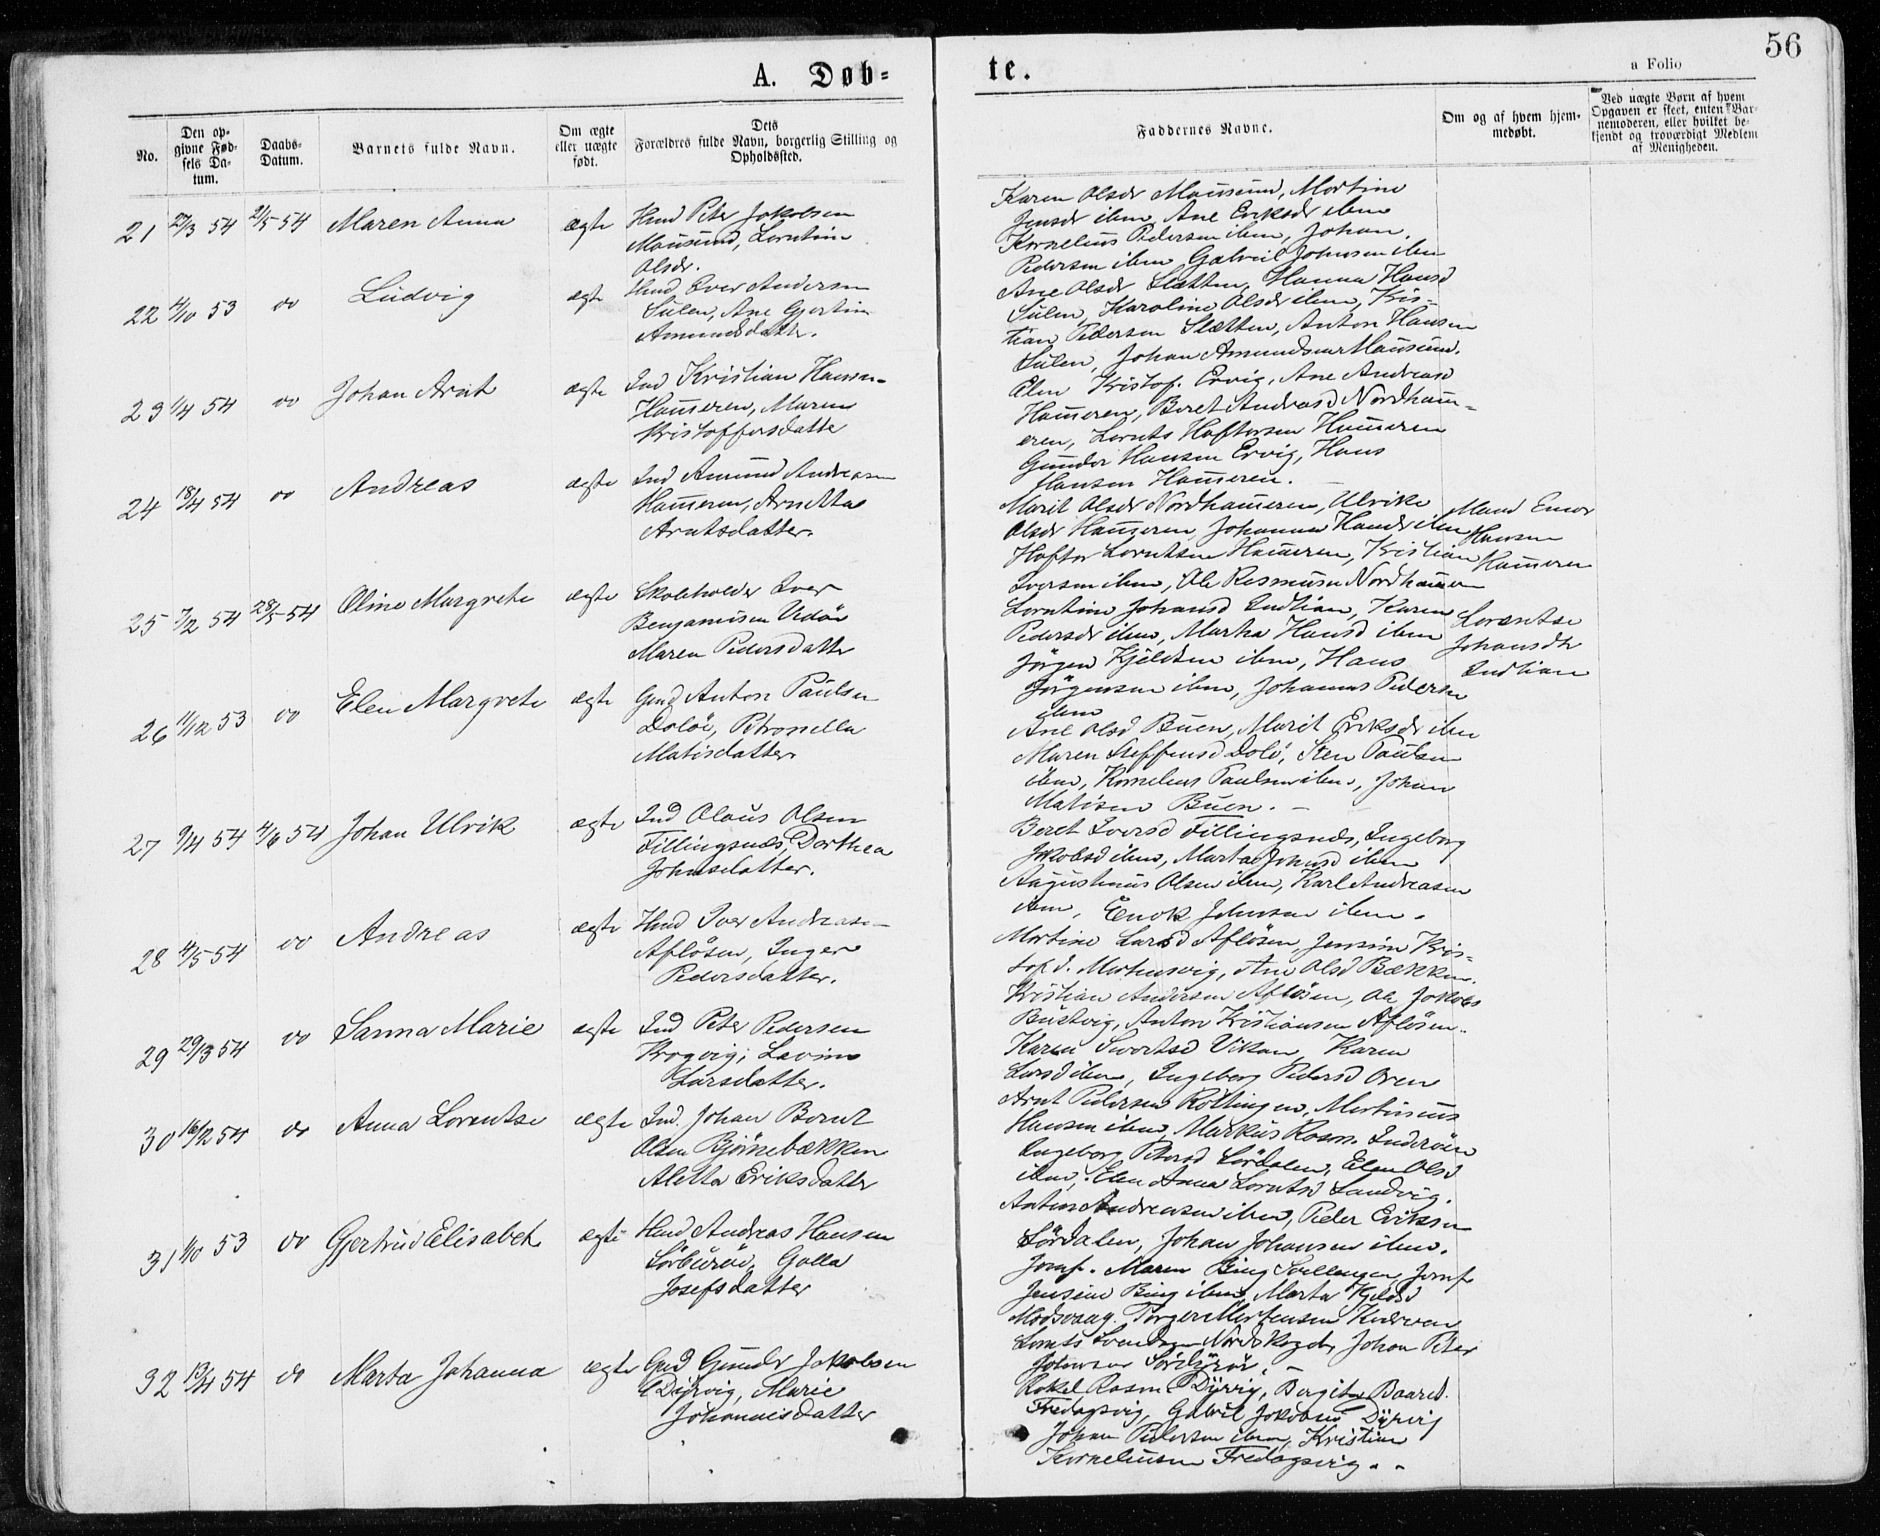 56
A. Døb-
te.
a Folio
No.
Den op-
givne Fød-
sels Da-
tum.
Daabs-
Datum.
Barnets fulde Navn.
Om ægte
eller uægte
født.
Dets
Forældres fulde Navn, borgerlig Stilling og
Opholdssted.
Faddernes Navne.
Om og af hvem hjem-
medøbt.
Ved uægte Børn af hvem
Opgaven er skeet, enten Bar-
nemoderen, eller hvilket be-
kjendt og troværdigt Medlem
af Menigheden.
21 27/3 54 2/5 54 Maren Anna ægte Hmd Peter Jakobsen
Mausund, Lorntine
Olsdr.
Karen Olsdr Mausund, Mortine
Jensdr ibm, Ane Eriksdr ibm
Kornelius Pedersen ibm, Johan
Pedersen ibm Gabriel Johnsen ibm
22 4/10 53 do Ludvig ægte Hmd Iver Andersen
Sulen, Ane Gjertine
Amundsdatter.
Ane Olsdr Slætten, Hanna Hansd
Sulen, Karoline Olsdr ibm, Kris-
tian Pedersen Slætten, Anton Hansen
Sulen, Johan Amundsen Mausund.
23 1/4 54 do Johan Arnt ægte Ind Kristian Hansen
Hameren, Maren
Kristoffersdatter
Elen Kristof. Ervig, Ane Andreasd
Hameren, Beret Andreasd Nordham-
eren, Lornts Haftorsen Hameren
Gunder Hansen Ervig, Hans
Hansen Hameren.
24 18/4 54 do Andreas ægte Ind Amund Andreasen
Hameren, Arnetta
Arntsdatter.
Marit Olsdr Nordhameren, Ulrike
Olsdr Hameren, Johanna Hansdr ibm
Haftor Lorntsen Hameren, Kristian
Iversen ibm, Ole Rasmusen Nordhameren
Mand Enevor
Hansen
Hameren
25 7/2 54 28/5 54 Oline Margrete ægte Skoleholder Iver
Benjaminsen Vedøi
Maren Pedersdatter
Lorntine Johansd Indtian, Karen
Pedersdr ibm, Marta Hansd ibm
Jørgen Kjeldsen ibm, Hans
Jørgensen ibm, Johannes Pedersen
ibm
Lorentse
Johansdtr
Indtian
26 11/12 53 do Elen Margrete ægte Gmd Anton Paulsen
Doløi, Petronella
Matisdatter
Ane Olsd Buen, Marit Eriksdr ibm
Maren Steffensd Dolø, Sten Paulsen
ibm, Kornelius Paulsen ibm, Johan
Matisen Buen.
27 9/4 54 4/6 54 Johan Ulrik ægte Ind Olaus Olsen
Fillingsnæs, Dorthea
Johnsdatter.
Beret Iversd Fillingsnæs, Ingeborg
Jakobsd ibm, Marta Johnsd ibm
Augustinus Olsen ibm, Karl Andreasen
ibm, Enok Johnsen ibm.
28 4/5 54 do Andreas ægte Hmd Iver Andreasen
Afløsen, Inger
Pedersdatter.
Mortine Larsd Afløsen, Jensine Kris-
tof.d. Mortensvig, Ane Olsd Bækken.
Kristian Andersen Afløsen, Ole Jakobs
Bustvig, Anton Kristiansen Afløsen.
29 29/3 54 do Sanna Marie ægte Ind Peter Pedersen
Krogvig, Lavine
Larsdatter.
Karen Sivertsd Vikan, Karen
Larsd ibm, Ingeborg Pedersd Oren
Arnt Pedersen Kottingen, Martinus
Hansen ibm, Markus Rasm. Inderøen
30 16/2 54 do Anna Lorentse ægte Ind. Johan Bernt
Olsen Bjørnebækken
Aletta Eriksdatter
Ingeborg Petersd Sørdalen, Elen Olsd
ibm, Elen Anna Lorntsd Sandvig.
Anton Andreasen ibm, Peder Eriksen
Sørdalen, Johan Johansen ibm.
31 1/10 53 do Gjertrud Elisabet ægte Hmd Andreas Hansen
Sørburøi, Golla
Josefsdatter
Jomf. Maren Bing Sullungen, Jomf
Jensine Bing ibm, Marta Kjeldsd
Modsvaag. Torger Mortensen Kudvaag
Lornts Svendsen Nordskoget, Johan Peter
Johnsen Sørburøi.
32 13/4 54 do Marta Johanna ægte Gmd Gunder Jakobsen
Dyrvig, Marie
Johannesdatter
Rakel Rasm. Dyrvig, Bergitte Baard.
Fredagsvig, Gabriel Jakobsen Dyrvig
Johan Pedersen ibm, Kristian
Korneliusen Fredagsvig.